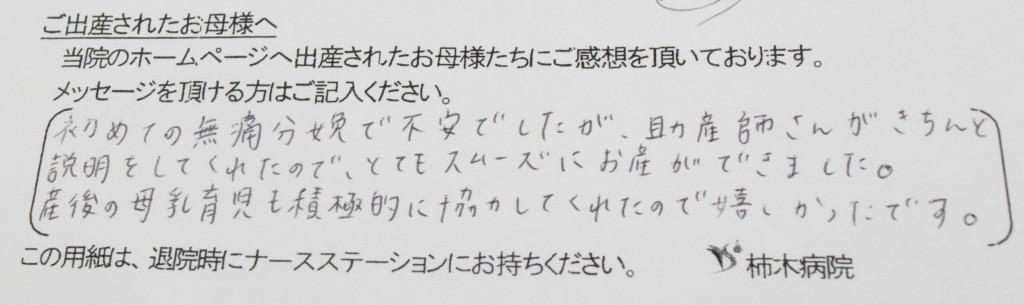 ご出産されたお母様へ
当院のホームページへ出産されたお母様たちにご感想を頂いております。
メッセージを頂ける方はご記入ください。
初めての無痛分娩で不安でしたが、助産師さんがきちんと
説明をしてくれたので、とてもスムーズにお産ができました。
産後の母乳育児も積極的に協力してくれたので嬉しかったです。
この用紙は、退院時にナースステーションにお持ちください。
柿木病院